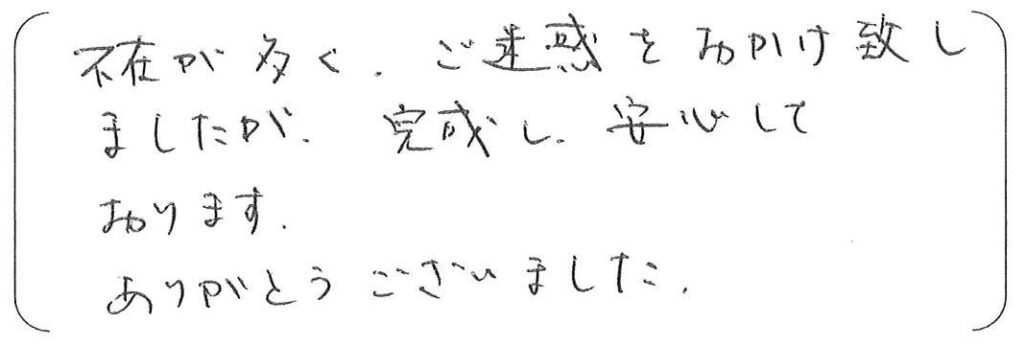 不在が多く、ご迷惑をおかけ致し
ましたが、完成し、安心して
おります。
ありがとうございました。